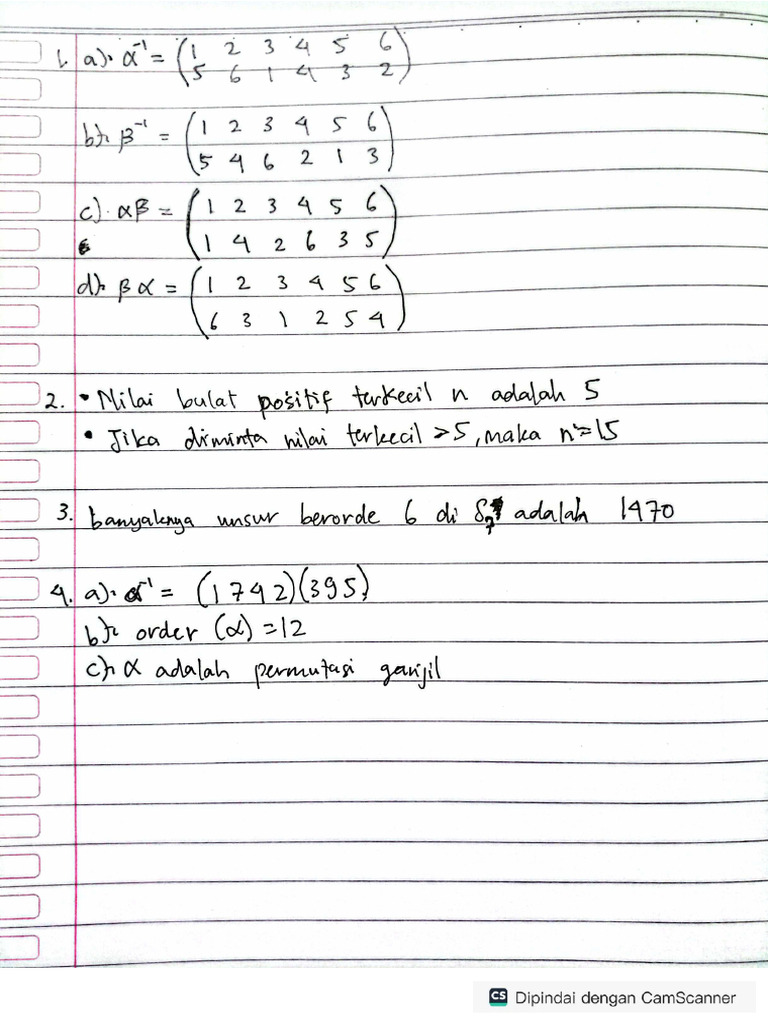 1. a). α⁻¹ = (1 2 3 4 5 6
5 6 1 4 3 2)
b). β⁻¹ = (1 2 3 4 5 6
5 4 6 2 1 3)
c). αβ = (1 2 3 4 5 6
1 4 2 6 3 5)
d). βα = (1 2 3 4 5 6
6 3 1 2 5 4)
2. • Nilai bulat positif terkecil n adalah 5
• Jika diminta nilai terkecil > 5, maka n = 15
3. banyaknya unsur berorde 6 di S₇ adalah 1470
4. a). α⁻¹ = (1 7 4 2)(3 9 5)
b). order (α) = 12
c). α adalah permutasi ganjil
CS Dipindai dengan CamScanner